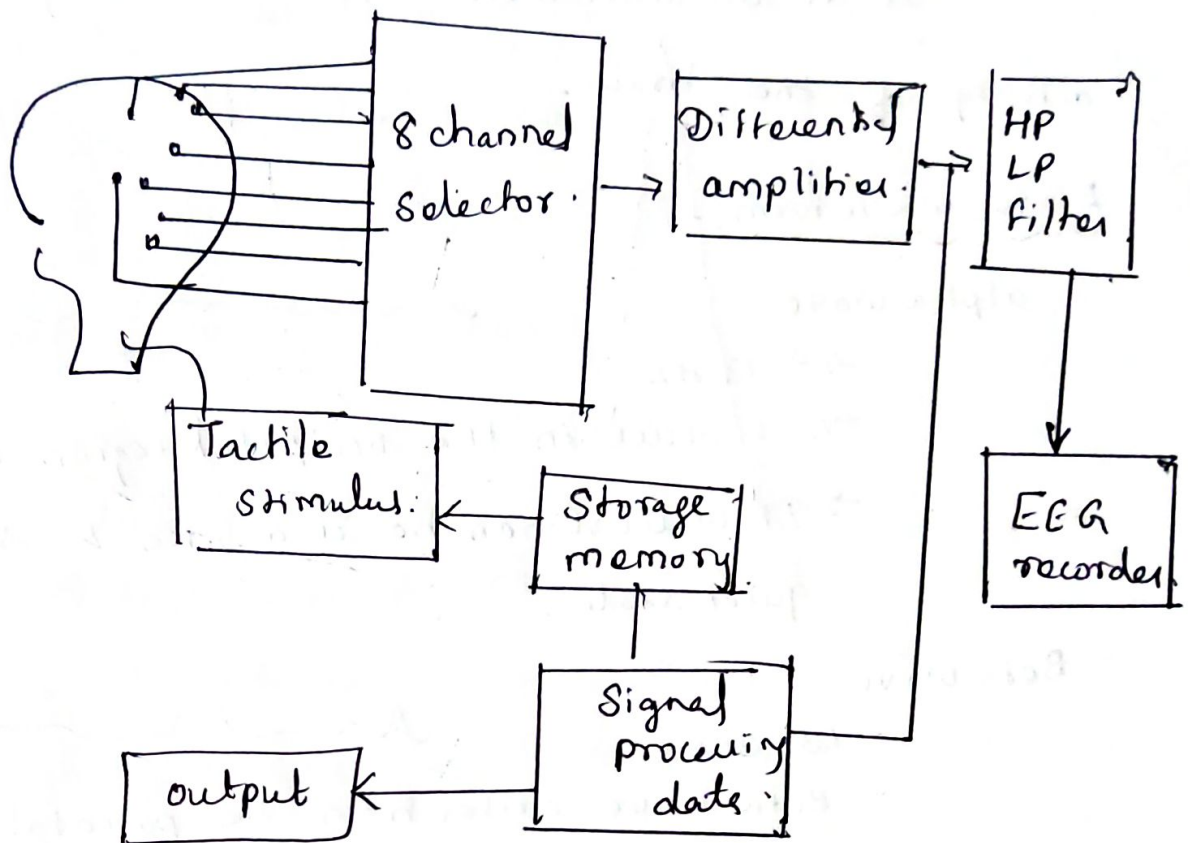 8 channel
Selector.
Differential
amplifier.
HP
LP
filter
Tactile
stimulus.
Storage
memory
EEG
recorder
Signal
processing
data.
output